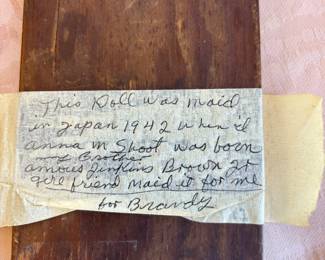 This Doll was maid
in Japan 1942 when I
anna m Shoot was boen
my Brother
amous Jinkins Brown Jr
girl friend maid it for me
for Brandy